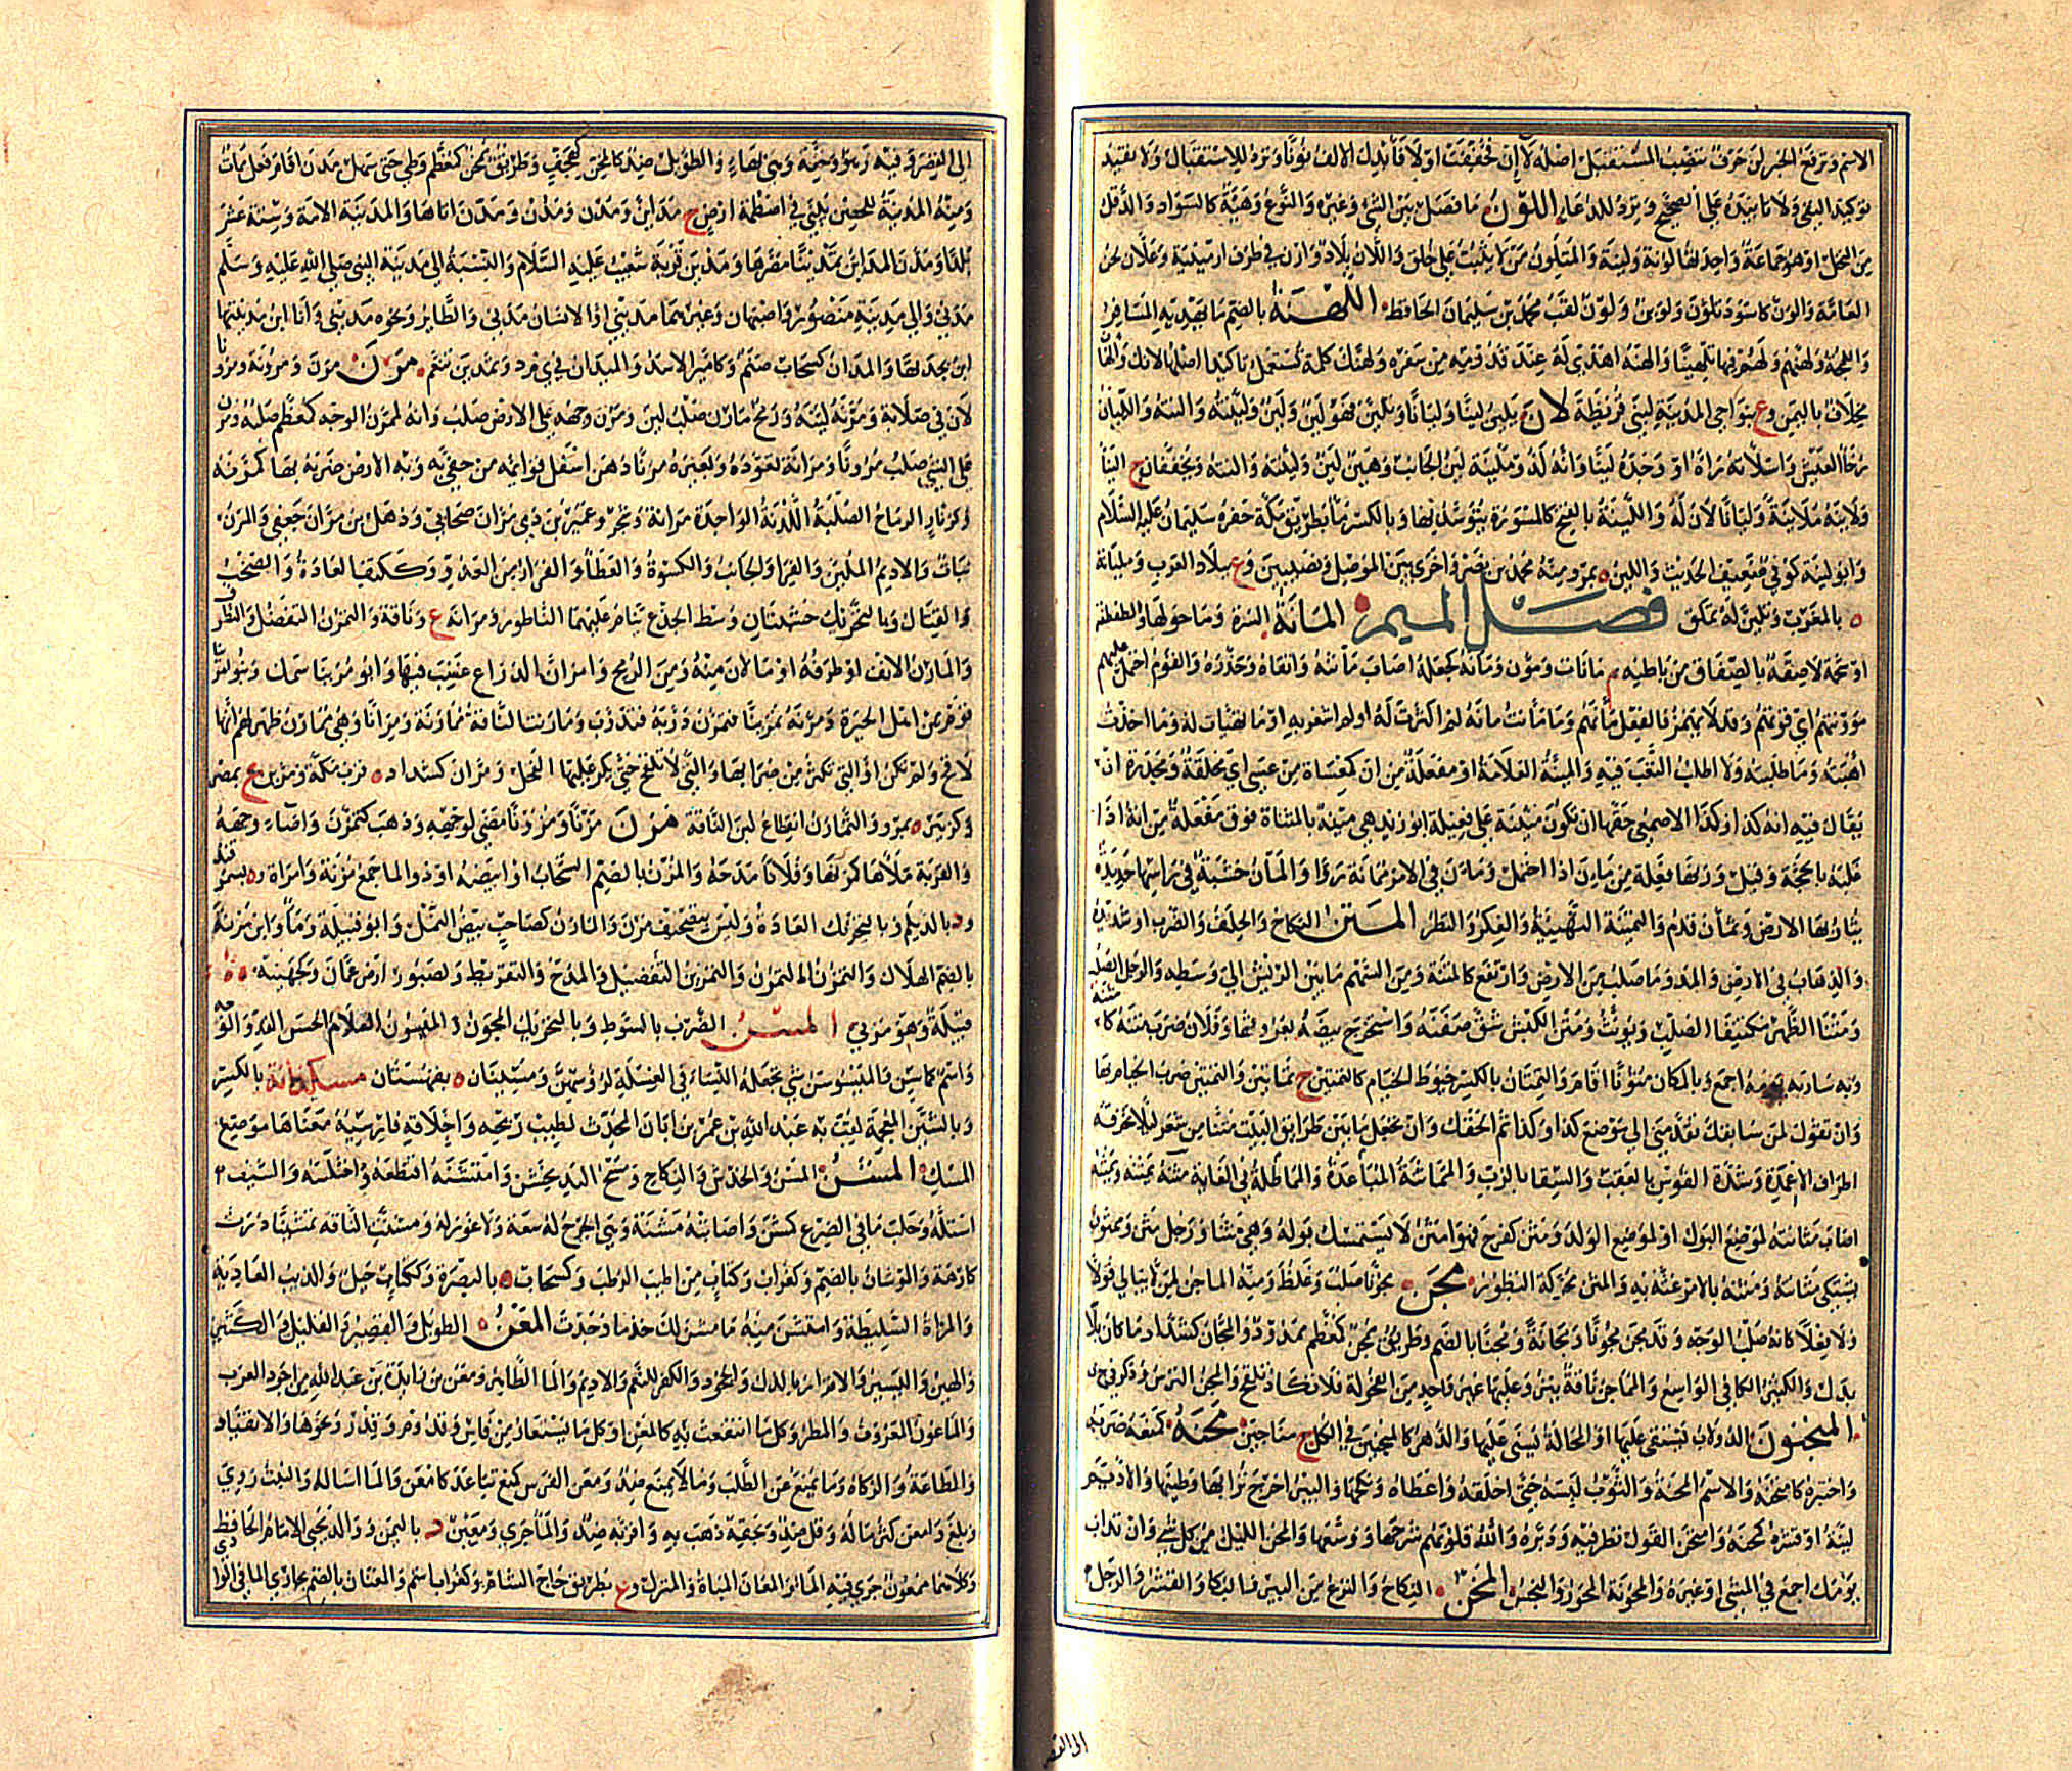 الاسم وترفع الخبر لن حرف ينصب المستقبل اصله لا ان فخففت اولا فابدلك الالف نونا وترد للاستقبال ولا تفيد
توكيد النفي ولا تابيده على الصحيح ويرد للدعاء اللون ما فصل بين الشئ وغيره والنوع وهيئة كالسواد والدقل
من النخل او هو جماعة واحدتها لونة ولينة والمتلون من لا يثبت على خلق واللان بلاد وازن في طرف ارمينية وعلان نحن
العامة والون كاسود تلون ولوين ولون لقب محمد بن سليمان الحافظ اللهنة بالضم ما يهديه المسافر
واللمجة ولهنهم ولهم فيها تلهينا والهنه اهدى له عند قدومه من سفره ولهنك كلمة تستعمل تاكيدا اصلها لانك والهنا
مخلاف باليمن وع بنواحي المدينة لبني قريظة لان يلين لينا وليانا وتلين فهو لين ولين ولينته والنته والليان
رخاء العيش واستلانه راه او وجده لينا وانه لذو ملينة لين الجانب وهين لين وليته والنه ويخففان ج الينا
ولاينه ملاينة وليانا لان له واللينة بالفتح كالمسورة يتوسد بها وبالكسر ماء بطريق مكة حفره سليمان عليه السلام
وابو لينة كوفي ضعيف الحديث واللين ه بمرو منه محمد بن نصر واخرى بين الموصل ونصيبين وع ببلاد العرب ومليانة
ه بالمغرب وتلين له تملق فصل الميم المانة السرة وما حولها والطفطفة
او شحمة لاصقة بالصفاق من باطنه م مانات ومؤن ومانه كجعله اصاب مانته واتقاه وحذره والقوم احتمل عليهم
مؤونتهم اي قوتهم وقد لا يهمز فالفعل مانهم وما مانت مانه لم اكترث له او لم اشعر به او ما تهيات له وما اخذت
اهبته وما طلبته ولا اطلت التعب فيه والمئنة العلامة او مفعلة من ان كمعساة من عسى اي مخلقة ومجدرة ان
يقال فيه انه كذا وكذا الاصمعي حقها ان تكون مئينة على فعيلة ابو زيد هي مئتة بالمثناة فوق مفعلة من اته اذا
غلبه بالحجة وقيل وزنها فعلة من مان اذا احتمل ومان في الامر مائنة تروا والمان خشبة في راسها حديدة
يثار بها الارض وتمان قدم والتمئنة التهيئة والفكر والنظر المتن النكاح والحلف والضرب او شديده
والذهاب في الارض والمد وما صلب من الارض وارتفع كالمتنة ومن السهم ما بين الريش الى وسطه والرجل الصلب
ومتنا الظهر مكتنفا الصلب ويؤنث ومتن الكبش شق صفنه واستخرج بيضه بعروقها وفلان ضرب متنه كا
وبه ساربه يومه اجمع وبالمكان متونا اقام والتمتان بالكسر خيوط الخيام كالتمتين ج تماتين والتمتين ضرب الخيام بها
وان تقول لمن سابقك تقدمني الى موضع كذا وكذا ثم الحقك وان تجعل ما بين طرائق البيت متنا من شعر ليلا تخرقه
اطراف الاعمدة وشدة القوس بالعقب والسقا بالرب والمماتنة المباعدة والمماطلة في الغاية مثنه يمثنه ويمثنه
اصاب مثانته لموضع البول او لموضع الولد ومثن كفرح فهو امثن لا يستمسك بوله وهي مثنا ورجل مثن وممثون
يشتكي مثانته ومثنه بالامر غته به والمثن محركة البظور مجن مجونا صلب وغلظ ومنه الماجن لمن لا يبالي قولا
ولا فعلا كانه صلب الوجه وقد مجن مجونا ومجانة ومجنا بالضم وطريق ممجن كمعظم ممدود والمجان كشداد ما كان بلا
بدل والكثير الكافي الواسع والمماجن ناقة ينزو عليها غير واحد من الفحولة فلا تكاد تلقح والمجن الترس وذكر في ج ن
المنجنون الدولاب يستقى عليها او المحالة يسنى عليها والدهر كالمنجنين في الكل ج مناجين محنه كمنعه ضربه
واختبره كامتحنه والاسم المحنة والثوب لبسه حتى اخلقه واعطاه ونكحها والبير اخرج ترابها وطينها والاديم
لينه او قشره كمحنه وامتحن القول نظر فيه ودبره والله قلوبهم شرحها ووسعها والمحن اللين من كل شي وان تداب
يومك اجمع في المشي او غيره والمحونة الحور والنجس المخن النكاح والنزع من البير فالبكا والقشر والرجل
الى القصر
الى القصر وفيه زهو وخفة وهي بهاء والطويل ضد كالمخن كهجف وطريق ممخن كمعظم وطي حتى سهل مدن اقام فعل ممات
ومنه المدينة للحصن يبنى في اصطمة ارض ج مداين ومدن ومدن ومدن اتاها والمدينة الامة وستة عشر
بلدا ومدن المداين تمدينا مصرها ومدين قرية شعيب عليه السلام والنسبة الى مدينة النبي صلى الله عليه وسلم
مدني والى مدينة منصور واصبهان وغيرهما مديني او الانسان مدني والطاير ونحوه مديني وانا ابن مدينتها
ابن بجدتها والمدان كسحاب صنم وكامير الاسد والميدان في م ي د وتمدين تنعم مرن مرن ومرونة ومرونا
لان في صلابة ومرنه لينه ورمح مارن صلب لين ومرن وجهه على الارض صلب وانه لممرن الوجه كمعظم صلبه ومرن
على الشي صلب مرونا ومرانة تعوده وبعيره مرنا دهن اسفل قوائمه من حفي به وبه الارض ضربه بها كمرنه
وكزنار الرماح الصلبة اللدنة الواحدة مرانة وشجر وعمير بن ذي مران صحابي وذهل بن مران جعفي والمرن
نبات والاديم الملين والفرا والجانب والكسوة والعطا والفرار من العدو وككتف العادة والصخب
والقتال وبالتحريك خشبتان وسط الجذع ينام عليهما الناطور ومرانة ع وناقة والتمرن التفضل والتظرف
والمارن الانف او طرفه او ما لان منه ومن الرمح وامران الذراع عصب فيها وابو مرينا سمك وبنو مرينا
قوم من اهل الحيرة ومرنه تمرينا فتمرن دربه فتدرب ومارنت الناقة ممارنة ومرانا وهي ممارن ظهر لهم انها
لاقح ولم تكن او التي تكثر من ضرابها والتي لا تلقح حتى يكر عليها الفحل ومران كشداد ه قرب مكة ومرين ع بمصر
وكزبير ه بمرو والتمارن انقطاع لبن الناقة مزن مزنا ومزونا مضى لوجهه وذهب كتمزن واضاء وجهه
والقربة ملاها كمزنها وفلانا مدحه والمزن بالضم السحاب او ابيضه او ذو الماء جمع مزنة وامراة وه بسمرقند
ود بالديلم وبالتحريك العادة وليس بتصحيف مرن والمازن كصاحب بيض النمل وابو قبيلة وماء وابن مزنة
بالضم الهلال والتمزن التمرن والتمزين التفضيل والمدح والتقريظ وكصبور ارض عمان وكجهينة
قبيلة وهو مزني المسن الضرب بالسوط وبالتحريك المجون والميسون الغلام الحسن القد والوجه
واسم كماسن والميسوسن شي يجعله النساء في الغسلة لرؤسهن ومسينان ه بقهستان مسكدانة بالكسر
وبالشين المعجمة لقب به عبد الله بن عمر بن ابان المحدث لطيب ريحه واخلاقه فارسية معناها موضع
المسك المشن المسن والخدش والنكاح ومسح اليد بخشن وامتشنه اقتطعه واختلسه والسيف
استله وحلب ما في الضرع كمشن واصابته مشنة وهي الجرح له سعة ولا غور له ومشنت الناقة تمشينا درت
كارهة والموشان بالضم وكغراب وكتاب من اطيب الرطب وكسحاب ه بالبصرة وككتاب جبل والذيب العادية
والمراة السليطة وامتشن منه ما مشن لك خذ ما وجدت المعن الطويل والقصير والقليل والكثير
والهين واليسير والاقرار بالذل والجحود والكفر للنعم والاديم والماء الظاهر ومعن بن زايدة بن عبد الله من اجود العرب
والماعون المعروف والمطر وكل ما انتفعت به كالمعن او كل ما يستعار من فاس وقدوم وقدر ونحوها والانقياد
والطاعة والزكاة وما يمنع عن الطلب وما لا يمنع ضد ومعن الفرس كمنع تباعد كامعن والماء اساله والنبت روي
وبلغ وامعن كثر ماله وقل ضد وبحقه ذهب به واقر به ضد والماء جرى ومعين د باليمن ووالد يحيى الامام الحافظ
وكلا ممعون جرى فيه الماء والمعان المباة والمنزل وع بطريق حاج الشام وكغراب اسم والمعنان بالضم مجاري الماء في الوادي